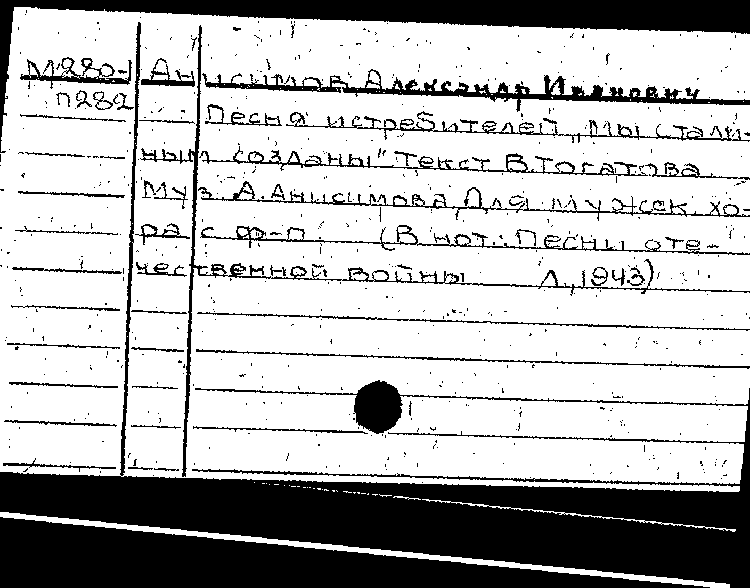 М280-1 Анисимов, Александр Иванович
П282 Песня истребителей „Мы стали-
ным созданы" Текст В. Тогатова
Муз. А. Анисимова Для мужск. хо-
ра с ф-п. (В нот.: Песни оте-
чественной войны Л., 1943)